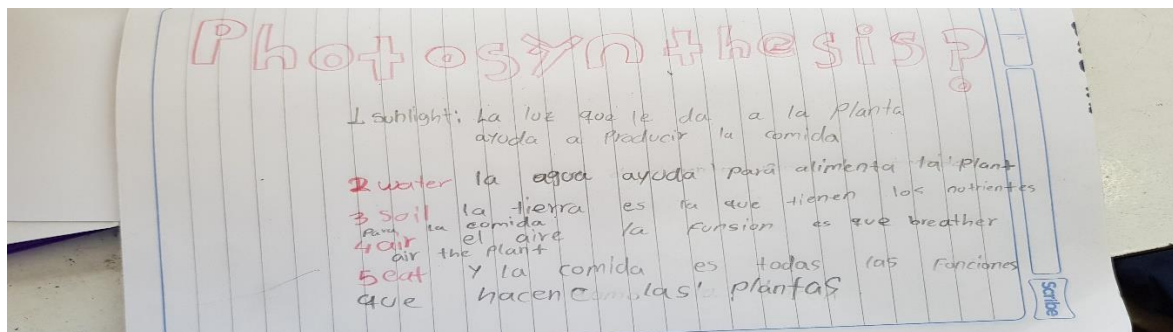 Photosynthesis?
1 sunlight: La luz que le da a la planta
ayuda a Producir la comida
2 water la agua ayuda para alimenta la plant
3 soil la tierra es la que tienen los nutrientes
Para la comida
4 air el aire la funsion es que breather
air the plant
5 eat y la comida es todas las Funciones
que hacen las plantas
Scribe